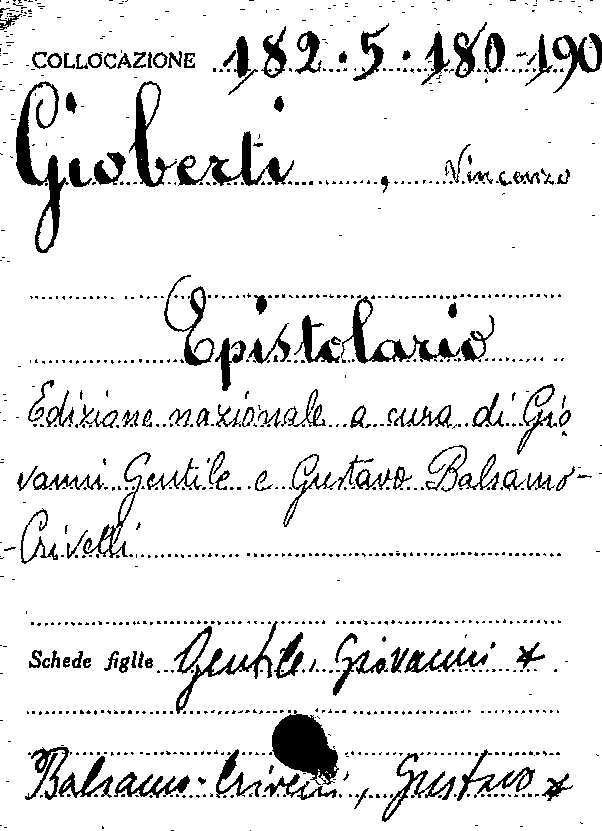 COLLOCAZIONE 182.5.180-190
Gioberti, Vincenzo
Epistolario
Edizione nazionale a cura di Gio
vanni Gentile e Gustavo Balsamo-
-Crivelli
Schede figlie Gentile, Giovanni *
Balsamo-Crivelli, Gustavo *